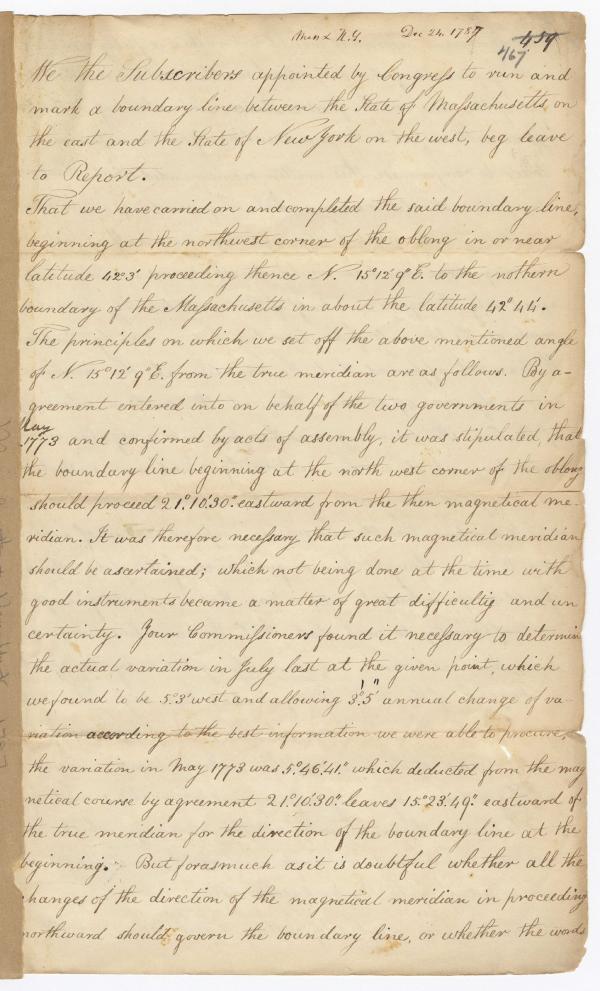 Mass & N.Y. Dec 24. 1787
459
467
We the Subscribers appointed by Congress to run and
mark a boundary line between the State of Massachusetts, on
the east and the State of New York on the west, beg leave
to Report.
That we have carried on and completed the said boundary line,
beginning at the northwest corner of the oblong in or near
latitude 42°3' proceeding thence N. 15°12'9" E. to the nothern
boundary of the Massachusetts in about the latitude 42°44'.
The principles on which we set off the above mentioned angle
of N. 15°12'9" E. from the true meridian are as follows. By a-
greement entered into on behalf of the two governments in
May
1773 and confirmed by acts of assembly, it was stipulated, that
the boundary line beginning at the north west corner of the oblong
should proceed 21°.10'.30." eastward from the then magnetical me-
ridian. It was therefore necessary that such magnetical meridian
should be ascertained; which not being done at the time with
good instruments became a matter of great difficultig and un
certainty. Your Commissioners found it necessary to determin
the actual variation in July last at the given point, which
we found to be 5°.3' west and allowing 3'.5" annual change of va-
riation according to the best information we were able to procure,
the variation in May 1773 was 5°.46'.41." which deducted from the mag
netical course by agreement 21°.10'.30." leaves 15°.23'.49." eastward of
the true meridian for the direction of the boundary line at the
beginning. But forasmuch as it is doubtful whether all the
changes of the direction of the magnetical meridian in proceeding
northward should govern the boundary line, or whether the words